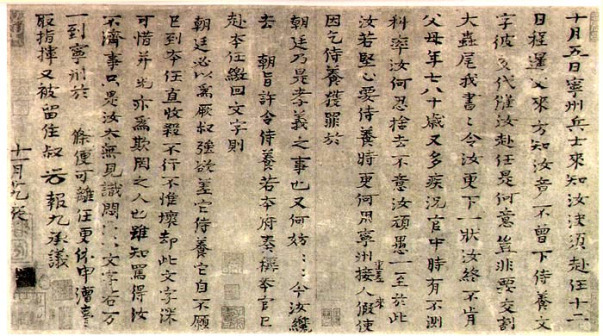 十月五日寧州兵士來知汝決須赴任十二
日程選文來方知汝竟不曾下侍養文
字彼交代催汝赴任是何意豈非要交割
大蟲尾我書〻令汝更下一狀汝終不肯
父母年七八十歲又多疾況官中時有不測
科率汝何忍捨去不意汝頑愚一至於此
汝若堅心要侍養時更何用寧州接人假使
因乞侍養獲罪於
朝廷乃是孝義之事也又何妨〻〻今汝纔
去 朝旨許令侍養若本府奏據本官已
赴本任繳回文字則
朝廷必以為厥叔強欲差它侍養它自不願
已到本任直收殺不行不惟壞却此文字深
可惜并兄亦為欺罔之人也雖知罵得汝
不濟事只是汝太無見識悶〻〻文字若万
一到寧州於 條便可離任更申漕臺
取指揮又被留住叔 報九承議
十一月